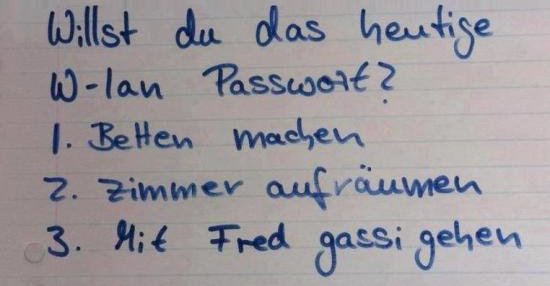 Willst du das heutige
W-lan Passwort?
1. Betten machen
2. Zimmer aufräumen
3. Mit Fred gassi gehen